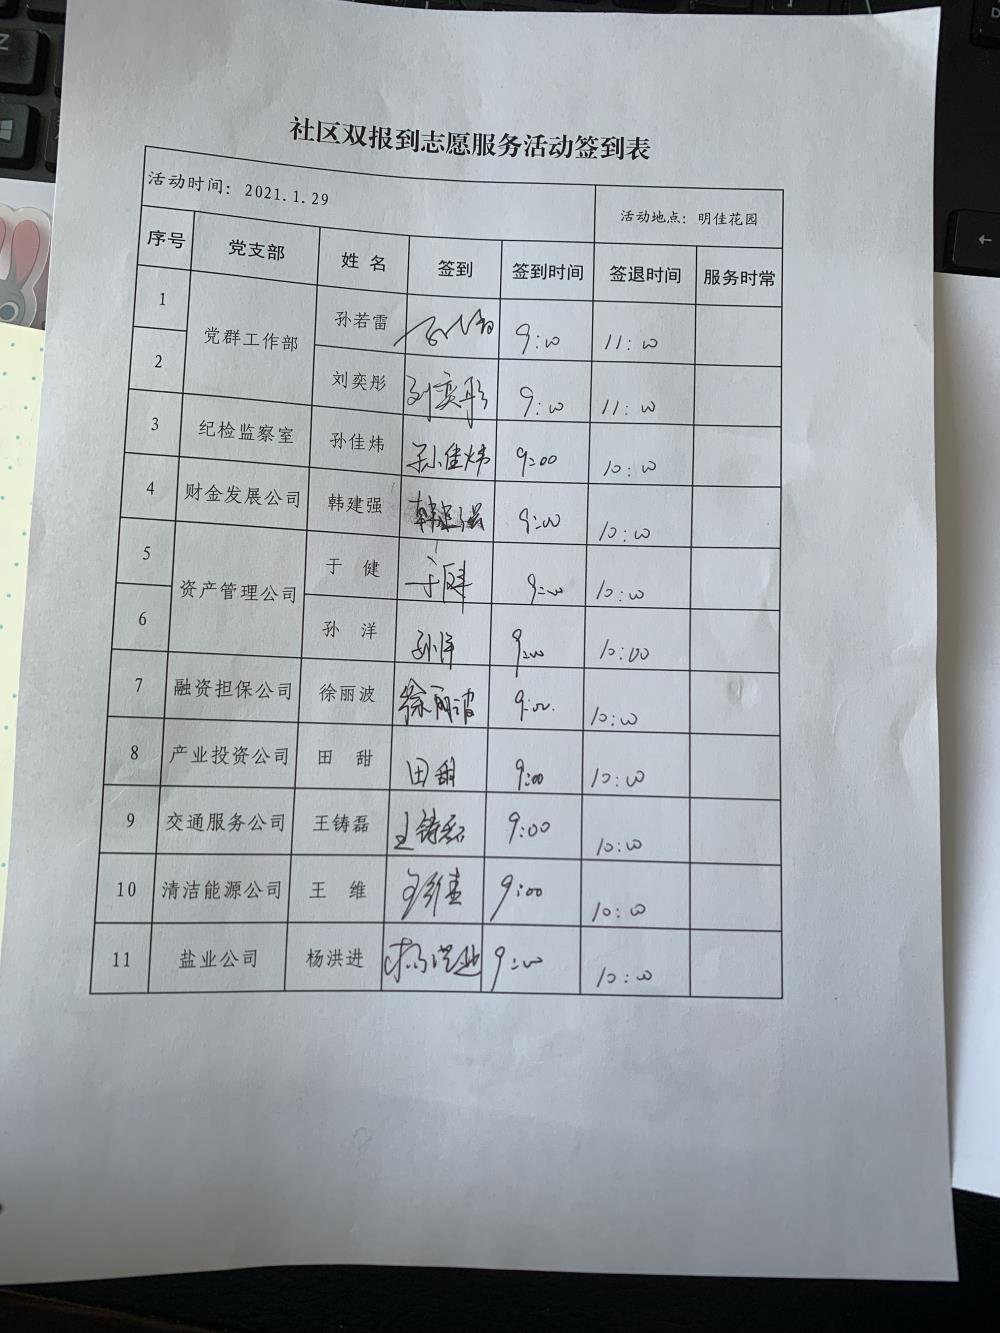 社区双报到志愿服务活动签到表
活动时间: 2021.1.29 活动地点: 明佳花园
序号 党支部 姓 名 签到 签到时间 签退时间 服务时常
1 党群工作部 孙若雷 9:00 11:00
2 刘奕彤 刘奕彤 9:00 11:00
3 纪检监察室 孙佳炜 孙佳炜 9:00 10:00
4 财金发展公司 韩建强 韩建强 9:00 10:00
5 资产管理公司 于 健 于健 9:00 10:00
6 孙 洋 孙洋 9:00 10:00
7 融资担保公司 徐丽波 徐丽波 9:00 10:00
8 产业投资公司 田 甜 田甜 9:00 10:00
9 交通服务公司 王铸磊 王铸磊 9:00 10:00
10 清洁能源公司 王 维 9:00 10:00
11 盐业公司 杨洪进 9:00 10:00